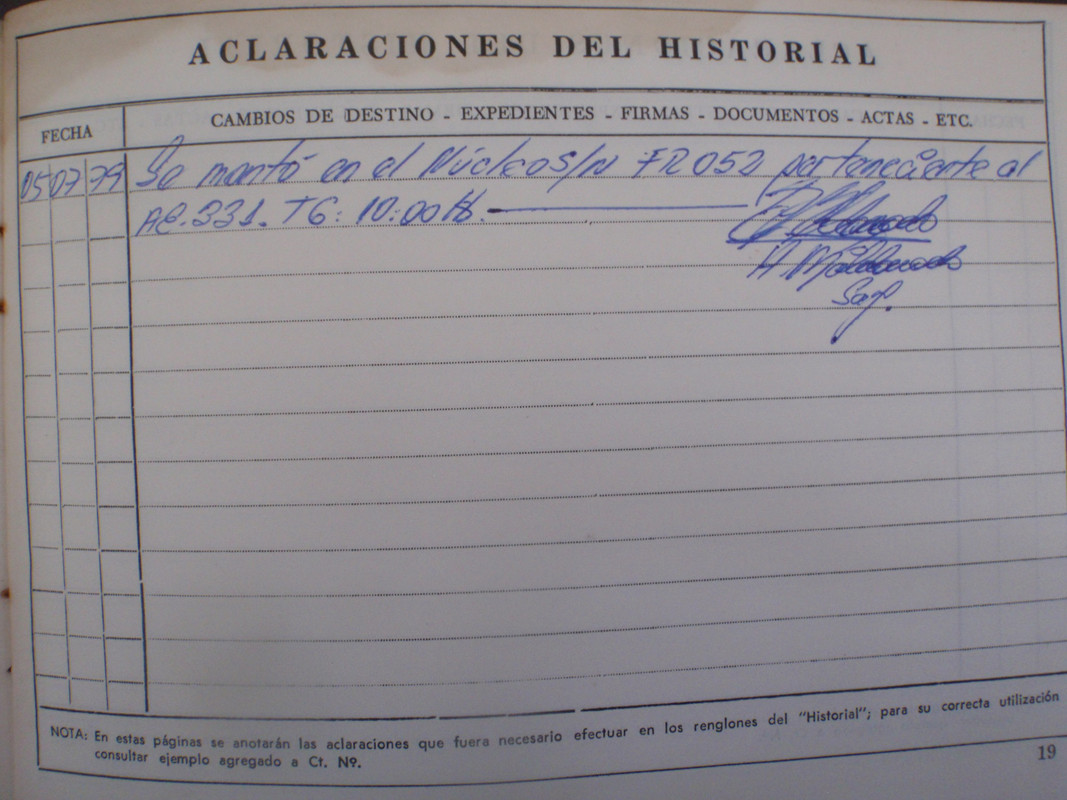 ACLARACIONES DEL HISTORIAL
FECHA
CAMBIOS DE DESTINO - EXPEDIENTES - FIRMAS - DOCUMENTOS - ACTAS - ETC.
05 07 79 Se montó en el Núcleo S/N FR052 perteneciente al
AE.331. TG: 10:00 H.
A. Maldonado
Sag.
NOTA: En estas páginas se anotarán las aclaraciones que fuera necesario efectuar en los renglones del "Historial"; para su correcta utilización
consultar ejemplo agregado a Ct. Nº.
19